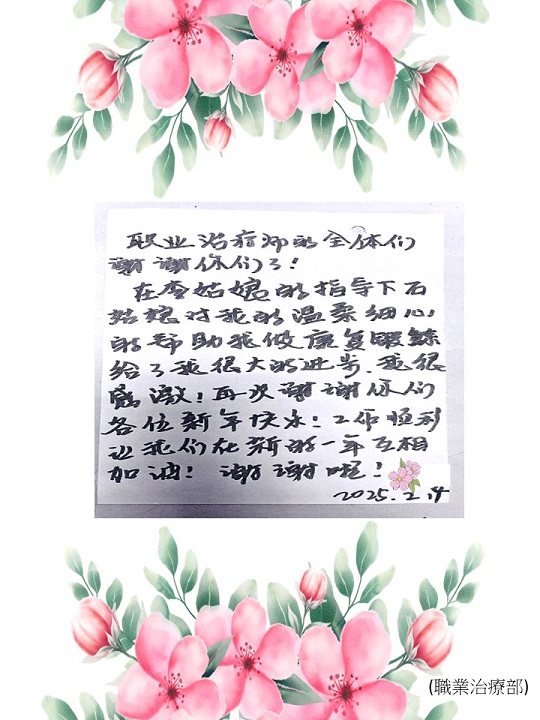 职业治疗师的全体们
谢谢你们了!
在李姑娘的指导下石
姑娘对我的温柔细心
的帮助我做康复锻鍊
给了我很大的进步.我很
感激!再次谢谢你们
各位新年快乐!工作顺利
让我们在新的一年互相
加油! 谢谢啦!
2025.2.14
(職業治療部)